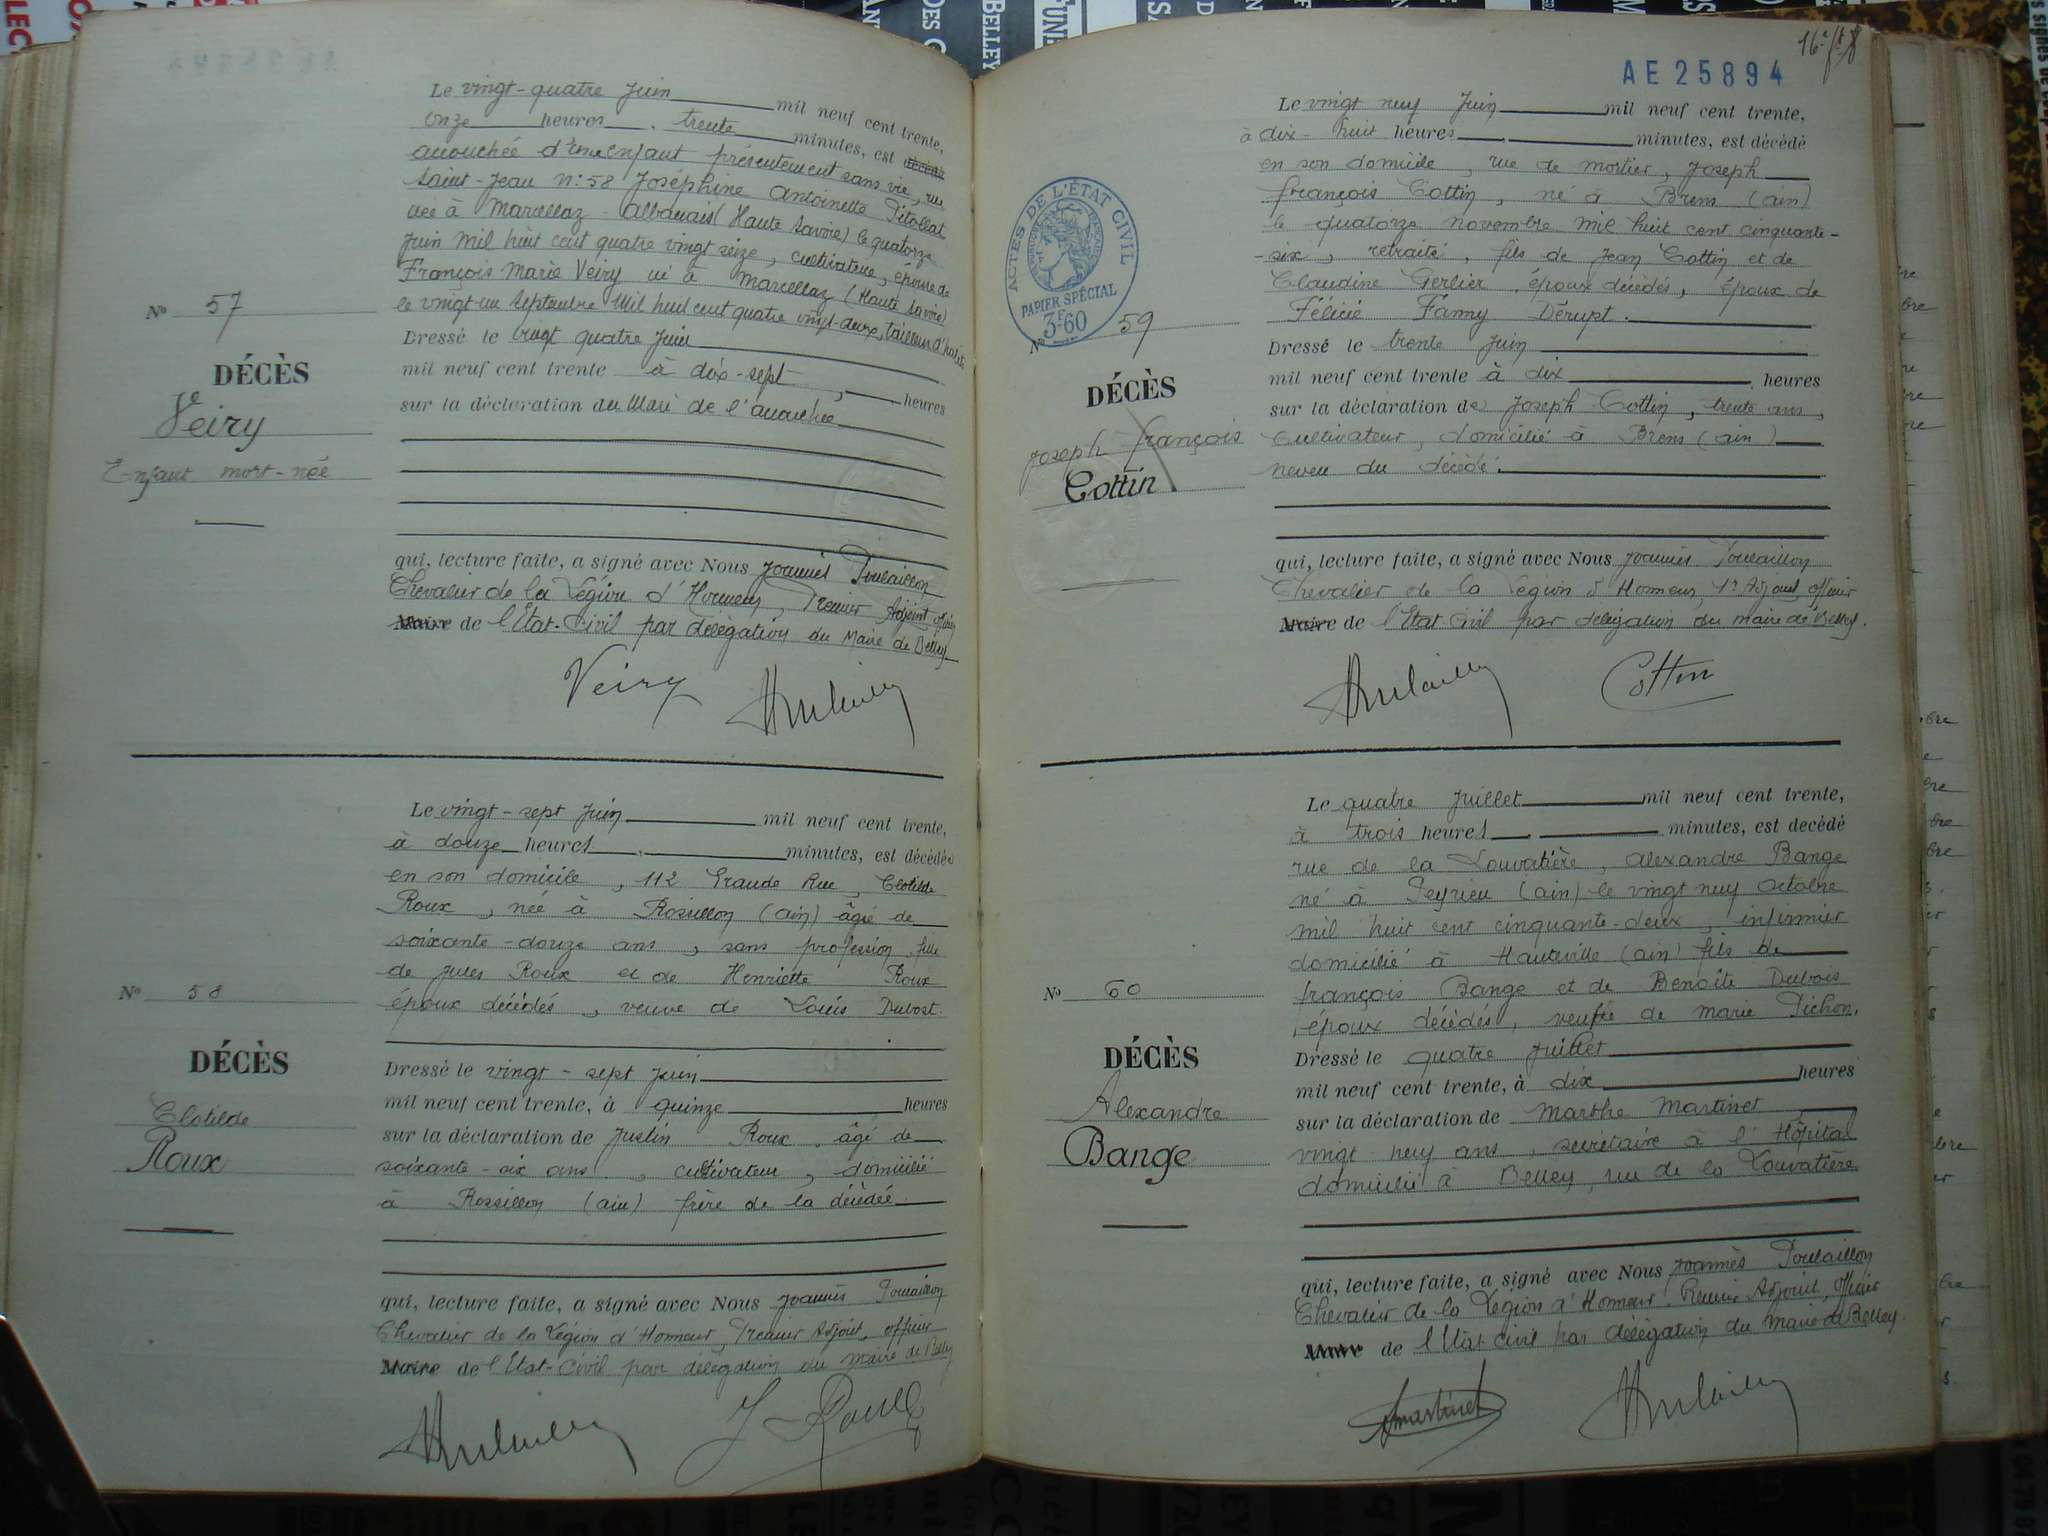 Le vingt-quatre juin mil neuf cent trente,
onze heures trente minutes, est
accouchée d'un enfant présentement sans vie, rue
Saint-Jean n: 58 Joséphine Antoinette Pitollat
née à Marcellaz-Albanais (Haute Savoie) le quatorze
juin mil huit cent quatre vingt seize, cultivateur, épouse de
François Marie Veiry né à Marcellaz (Haute Savoie)
le vingt un Septembre mil huit cent quatre vingt-deux, tailleur d'habits
Nº 57
DÉCÈS
Veiry
Enfant mort-née
Dressé le vingt quatre juin
mil neuf cent trente à dix-sept heures
sur la déclaration du Mari de l'accouchée
qui, lecture faite, a signé avec Nous Joannès Poulaillon
Chevalier de la Légion d'Honneur, Premier Adjoint officier
Maire de l'Etat-Civil par délégation du Maire de Belley
Veiry
Le vingt-sept juin mil neuf cent trente,
à douze heures minutes, est décédée
en son domicile, 112 Grande Rue, Clotilde
Roux, née à Rossillon (ain) âgée de
soixante-douze ans, sans profession, fille
de Jules Roux et de Henriette Roux
époux décédés, veuve de Louis Dubost.
Nº 58
DÉCÈS
Clotilde
Roux
Dressé le vingt-sept juin
mil neuf cent trente, à quinze heures
sur la déclaration de Justin Roux âgé de
soixante-six ans, cultivateur, domicilié
à Rossillon (ain) frère de la décédée
qui, lecture faite, a signé avec Nous Joannès Poulaillon
Chevalier de la Légion d'Honneur, Premier Adjoint, officier
Maire de l'Etat-Civil par délégation du Maire de Belley
J Roux
AE 25894
Le vingt neuf juin mil neuf cent trente,
à dix-huit heures minutes, est décédé
en son domicile, rue de mortier, Joseph
françois Cottin, né à Brens (ain)
le quatorze novembre mil huit cent cinquante-
-six, retraité, fils de Jean Cottin et de
Claudine Gerlier, époux décédés, époux de
Félicie Fanny Dérupt.
ACTES DE L'ÉTAT CIVIL
RÉPUBLIQUE FRANÇAISE
PAPIER SPÉCIAL
3F60
Nº 59
DÉCÈS
Joseph françois
Cottin
Dressé le trente juin
mil neuf cent trente à dix heures
sur la déclaration de Joseph Cottin, trente ans,
cultivateur, domicilié à Brens (ain)
neveu du décédé.
qui, lecture faite, a signé avec Nous Joannès Poulaillon
Chevalier de la Légion d'Honneur, 1er Adjoint officier
Maire de l'Etat Civil par délégation du maire de Belley.
Cottin
Le quatre juillet mil neuf cent trente,
à trois heures minutes, est décédé
rue de la Louvatière, Alexandre Bange
né à Peyrieu (ain) le vingt neuf octobre
mil huit cent cinquante-deux, infirmier
domicilié à Hauteville (ain) fils de
françois Bange et de Benoîte Dubois
époux décédés, veuf de Marie Pichon.
Nº 60
DÉCÈS
Alexandre
Bange
Dressé le quatre juillet
mil neuf cent trente, à dix heures
sur la déclaration de Marthe Martinet
vingt neuf ans, secrétaire à l'Hôpital
domicilié à Belley, rue de la Louvatière
qui, lecture faite, a signé avec Nous Joannès Poulaillon
Chevalier de la Légion d'Honneur, Premier Adjoint, officier
Maire de l'Etat Civil par délégation du Maire de Belley.
Martinet